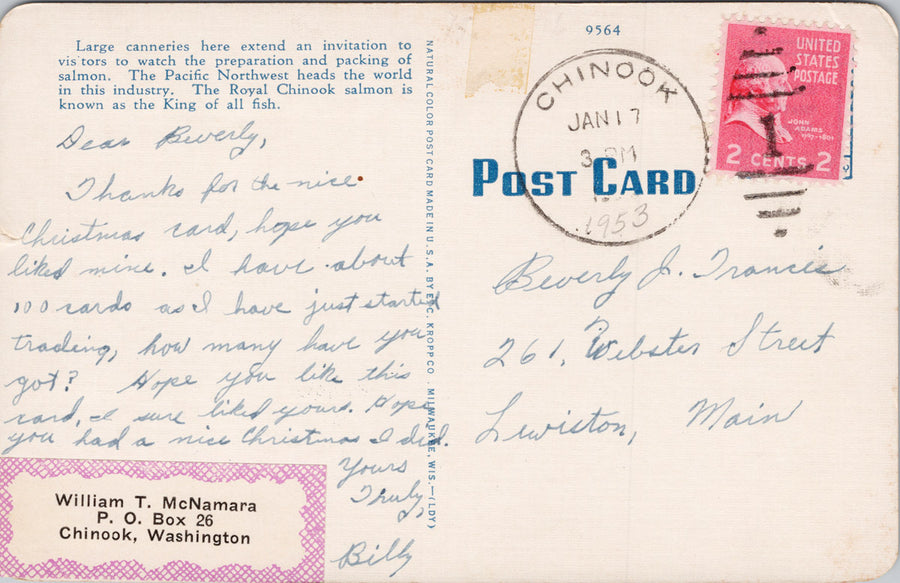 Large canneries here extend an invitation to
visitors to watch the preparation and packing of
salmon. The Pacific Northwest heads the world
in this industry. The Royal Chinook salmon is
known as the King of all fish.
Dear Beverly,
Thanks for the nice
Christmas card, hope you
liked mine. I have about
100 cards as I have just started
trading, how many have you
got? Hope you like this
card, I sure liked yours. Hope
you had a nice Christmas I did.
Yours
Truly,
Billy
William T. McNamara
P. O. Box 26
Chinook, Washington
NATURAL COLOR POST CARD MADE IN U.S.A. BY E. C. KROPP CO. MILWAUKEE, WIS.—(LDY)
9564
CHINOOK
JAN 17
3 PM
1953
UNITED
STATES
POSTAGE
JOHN
ADAMS
1797-1801
2 CENTS 2
POST CARD
Beverly J. Francis
261, Webster Street
Lewiston, Main